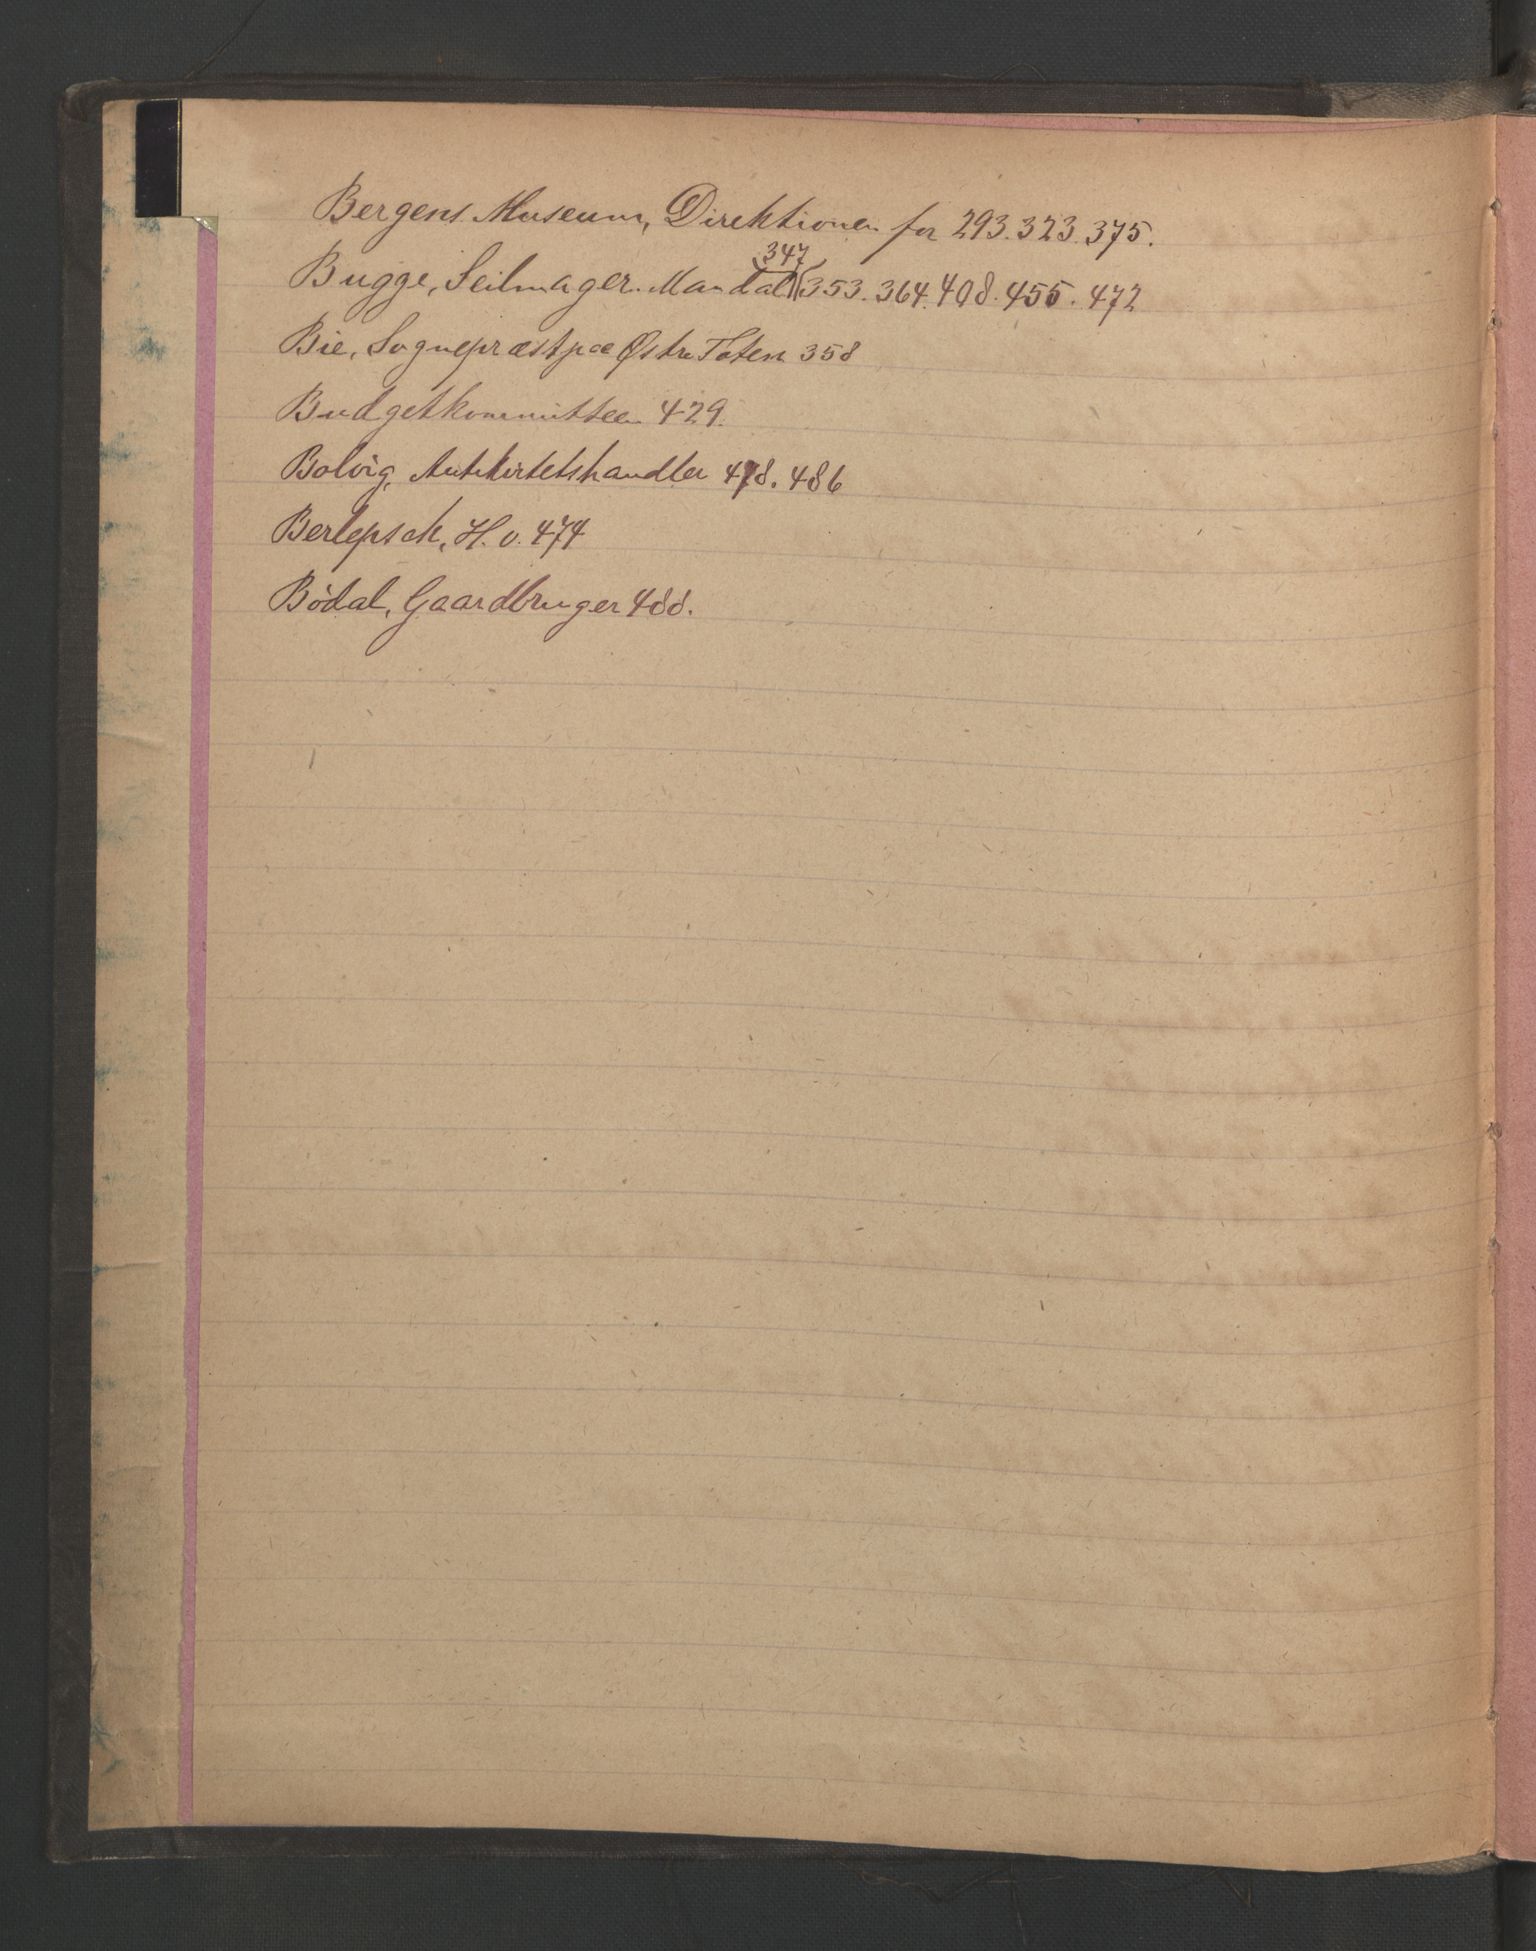 Bergens Museum, Direktionen for 293. 323. 375.
347
Bugge, Seilmager. Mandal 353. 364. 408. 455. 472
Bie, Sognepræst paa Østre Toten 358
Budgetkommitteen 429.
Bolvig, Antikvitetshandler 478. 486
Berlepsch, H. v. 474
Bödal, Gaardbruger 488.